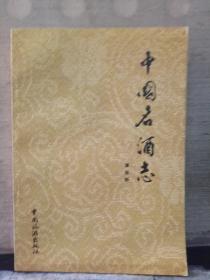 中国名酒志
中国旅游出版社